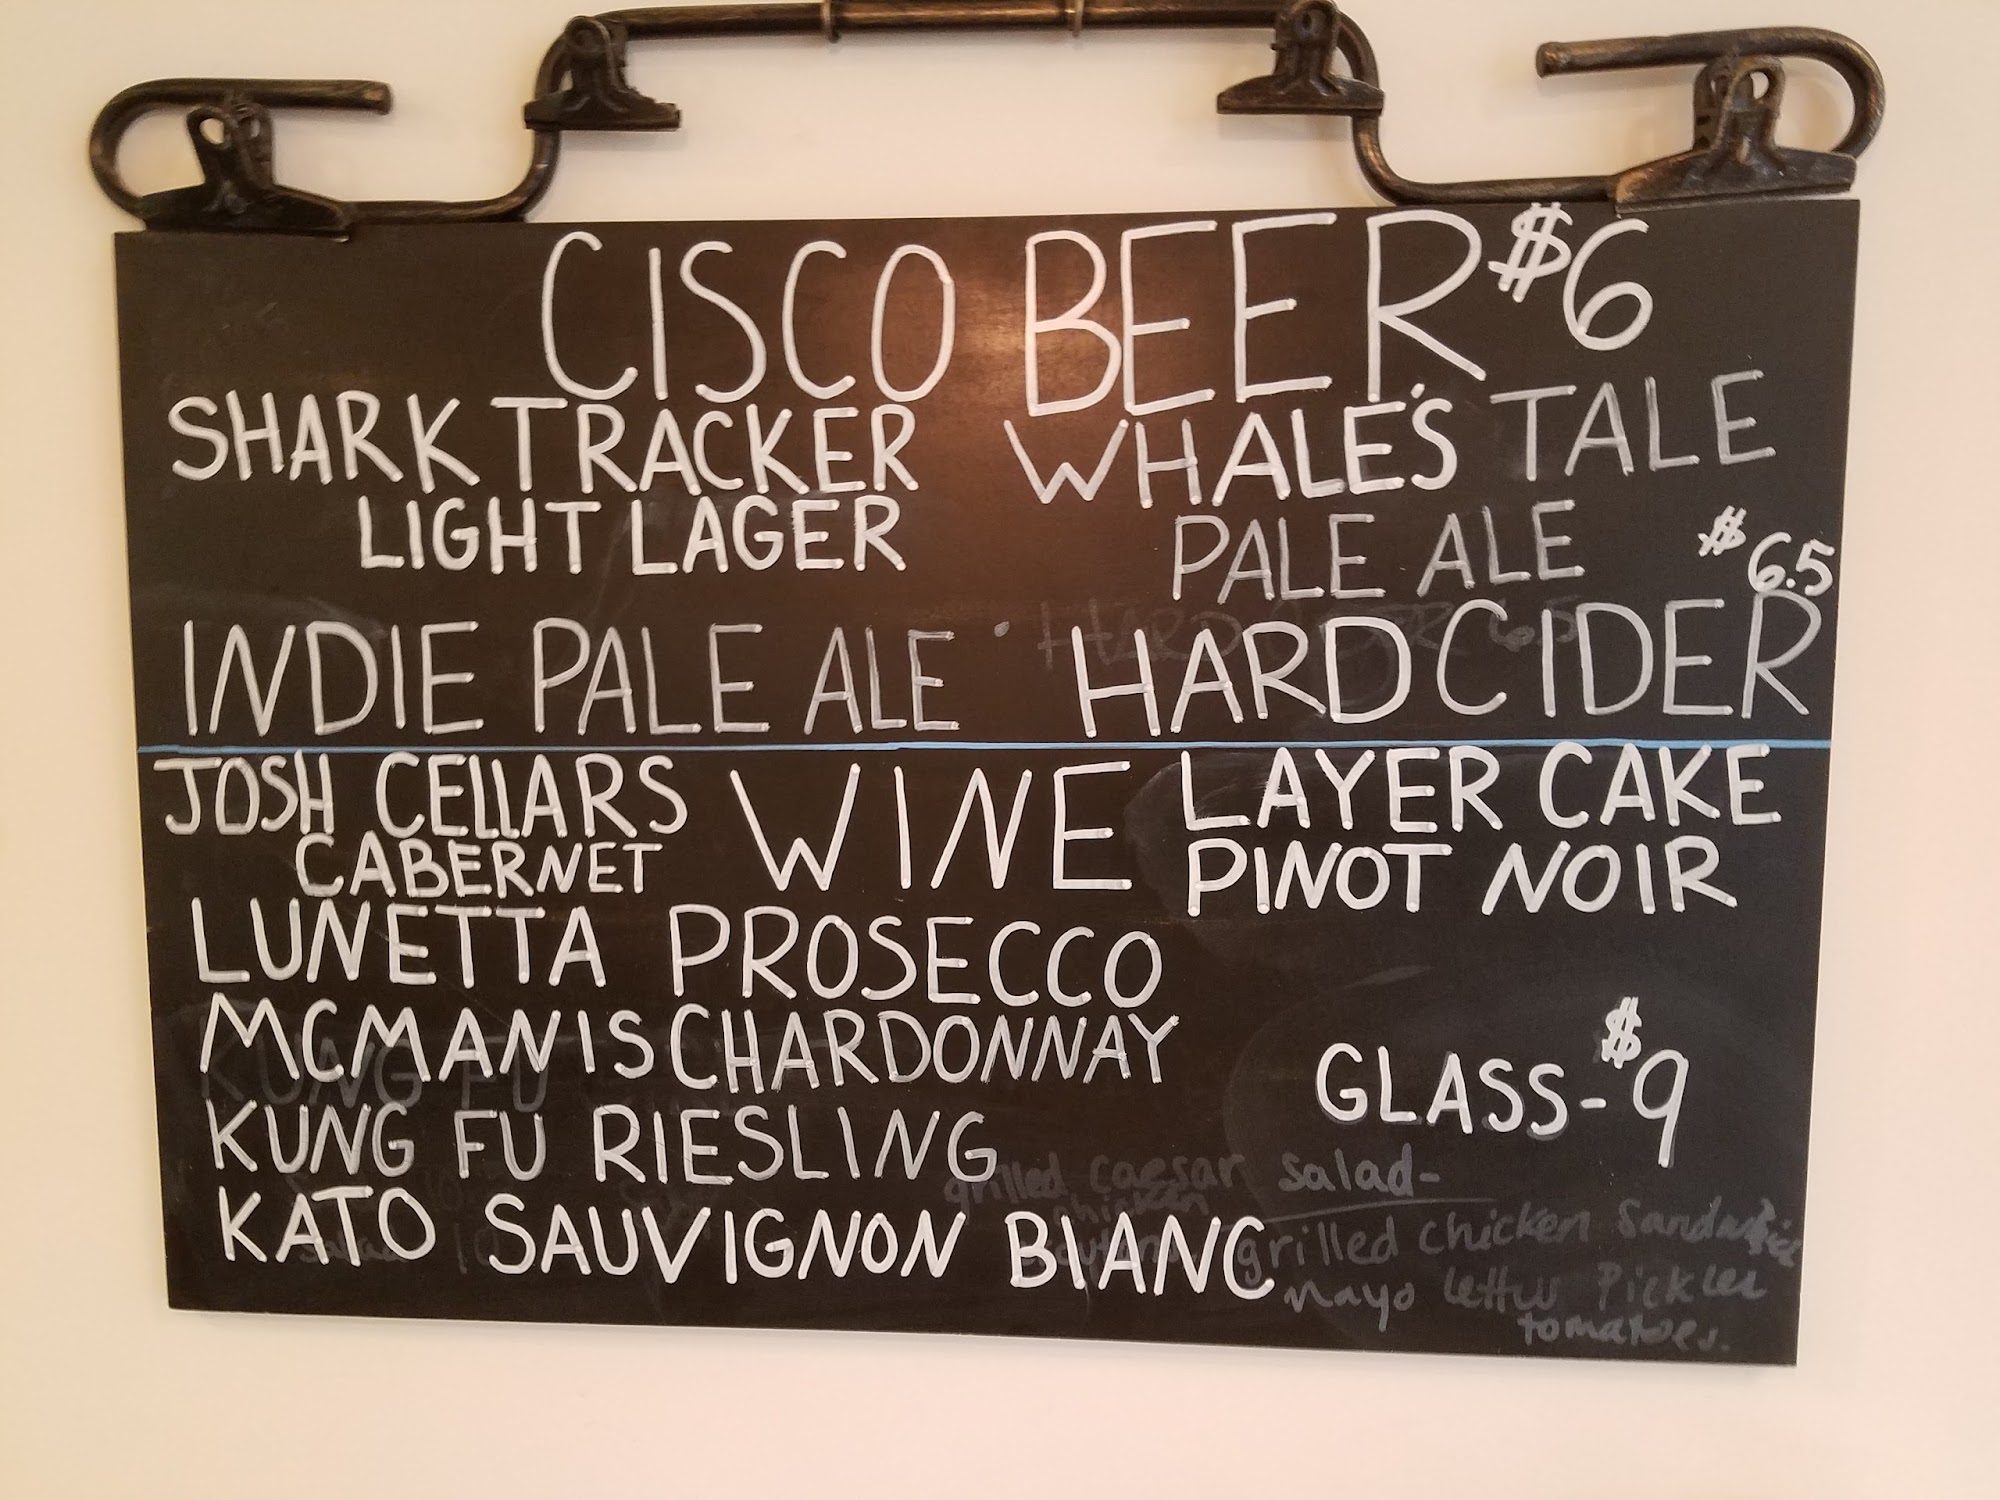 CISCO BEER $6
SHARK TRACKER
LIGHT LAGER
WHALE'S TALE
PALE ALE
INDIE PALE ALE
$6.5
HARD CIDER
WINE
JOSH CELLARS
CABERNET
LAYER CAKE
PINOT NOIR
LUNETTA PROSECCO
MCMANIS CHARDONNAY
KUNG FU RIESLING
KATO SAUVIGNON BLANC
GLASS-$9
grilled caesar salad-
chicken
grilled chicken sandwich
mayo lettus Pickles
tomatoes.